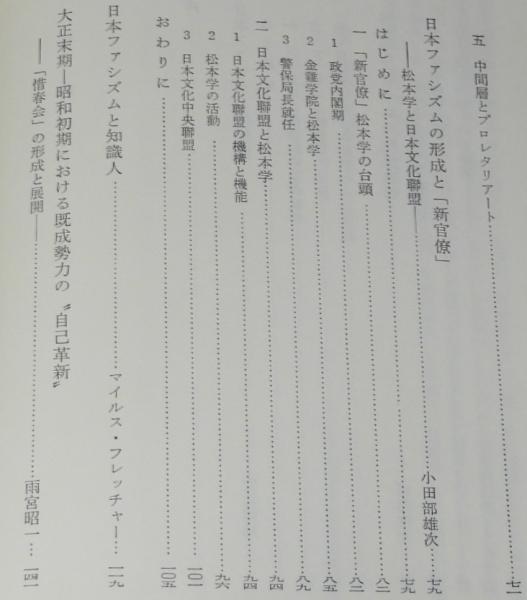 五 中間層とプロレタリアート……七一
日本ファシズムの形成と「新官僚」
——松本学と日本文化聯盟——……小田部雄次…七九
はじめに……七九
一 「新官僚」松本学の台頭……八二
1 政党内閣期……八二
2 金雞学院と松本学……八五
3 警保局長就任……八九
二 日本文化聯盟と松本学……九四
1 日本文化聯盟の機構と機能……九四
2 松本学の活動……九六
3 日本文化中央聯盟……一〇一
おわりに……一〇五
日本ファシズムと知識人……マイルス・フレッチャー…一一九
大正末期—昭和初期における既成勢力の〝自己革新〟
——「惜春会」の形成と展開——……雨宮昭一…一四一